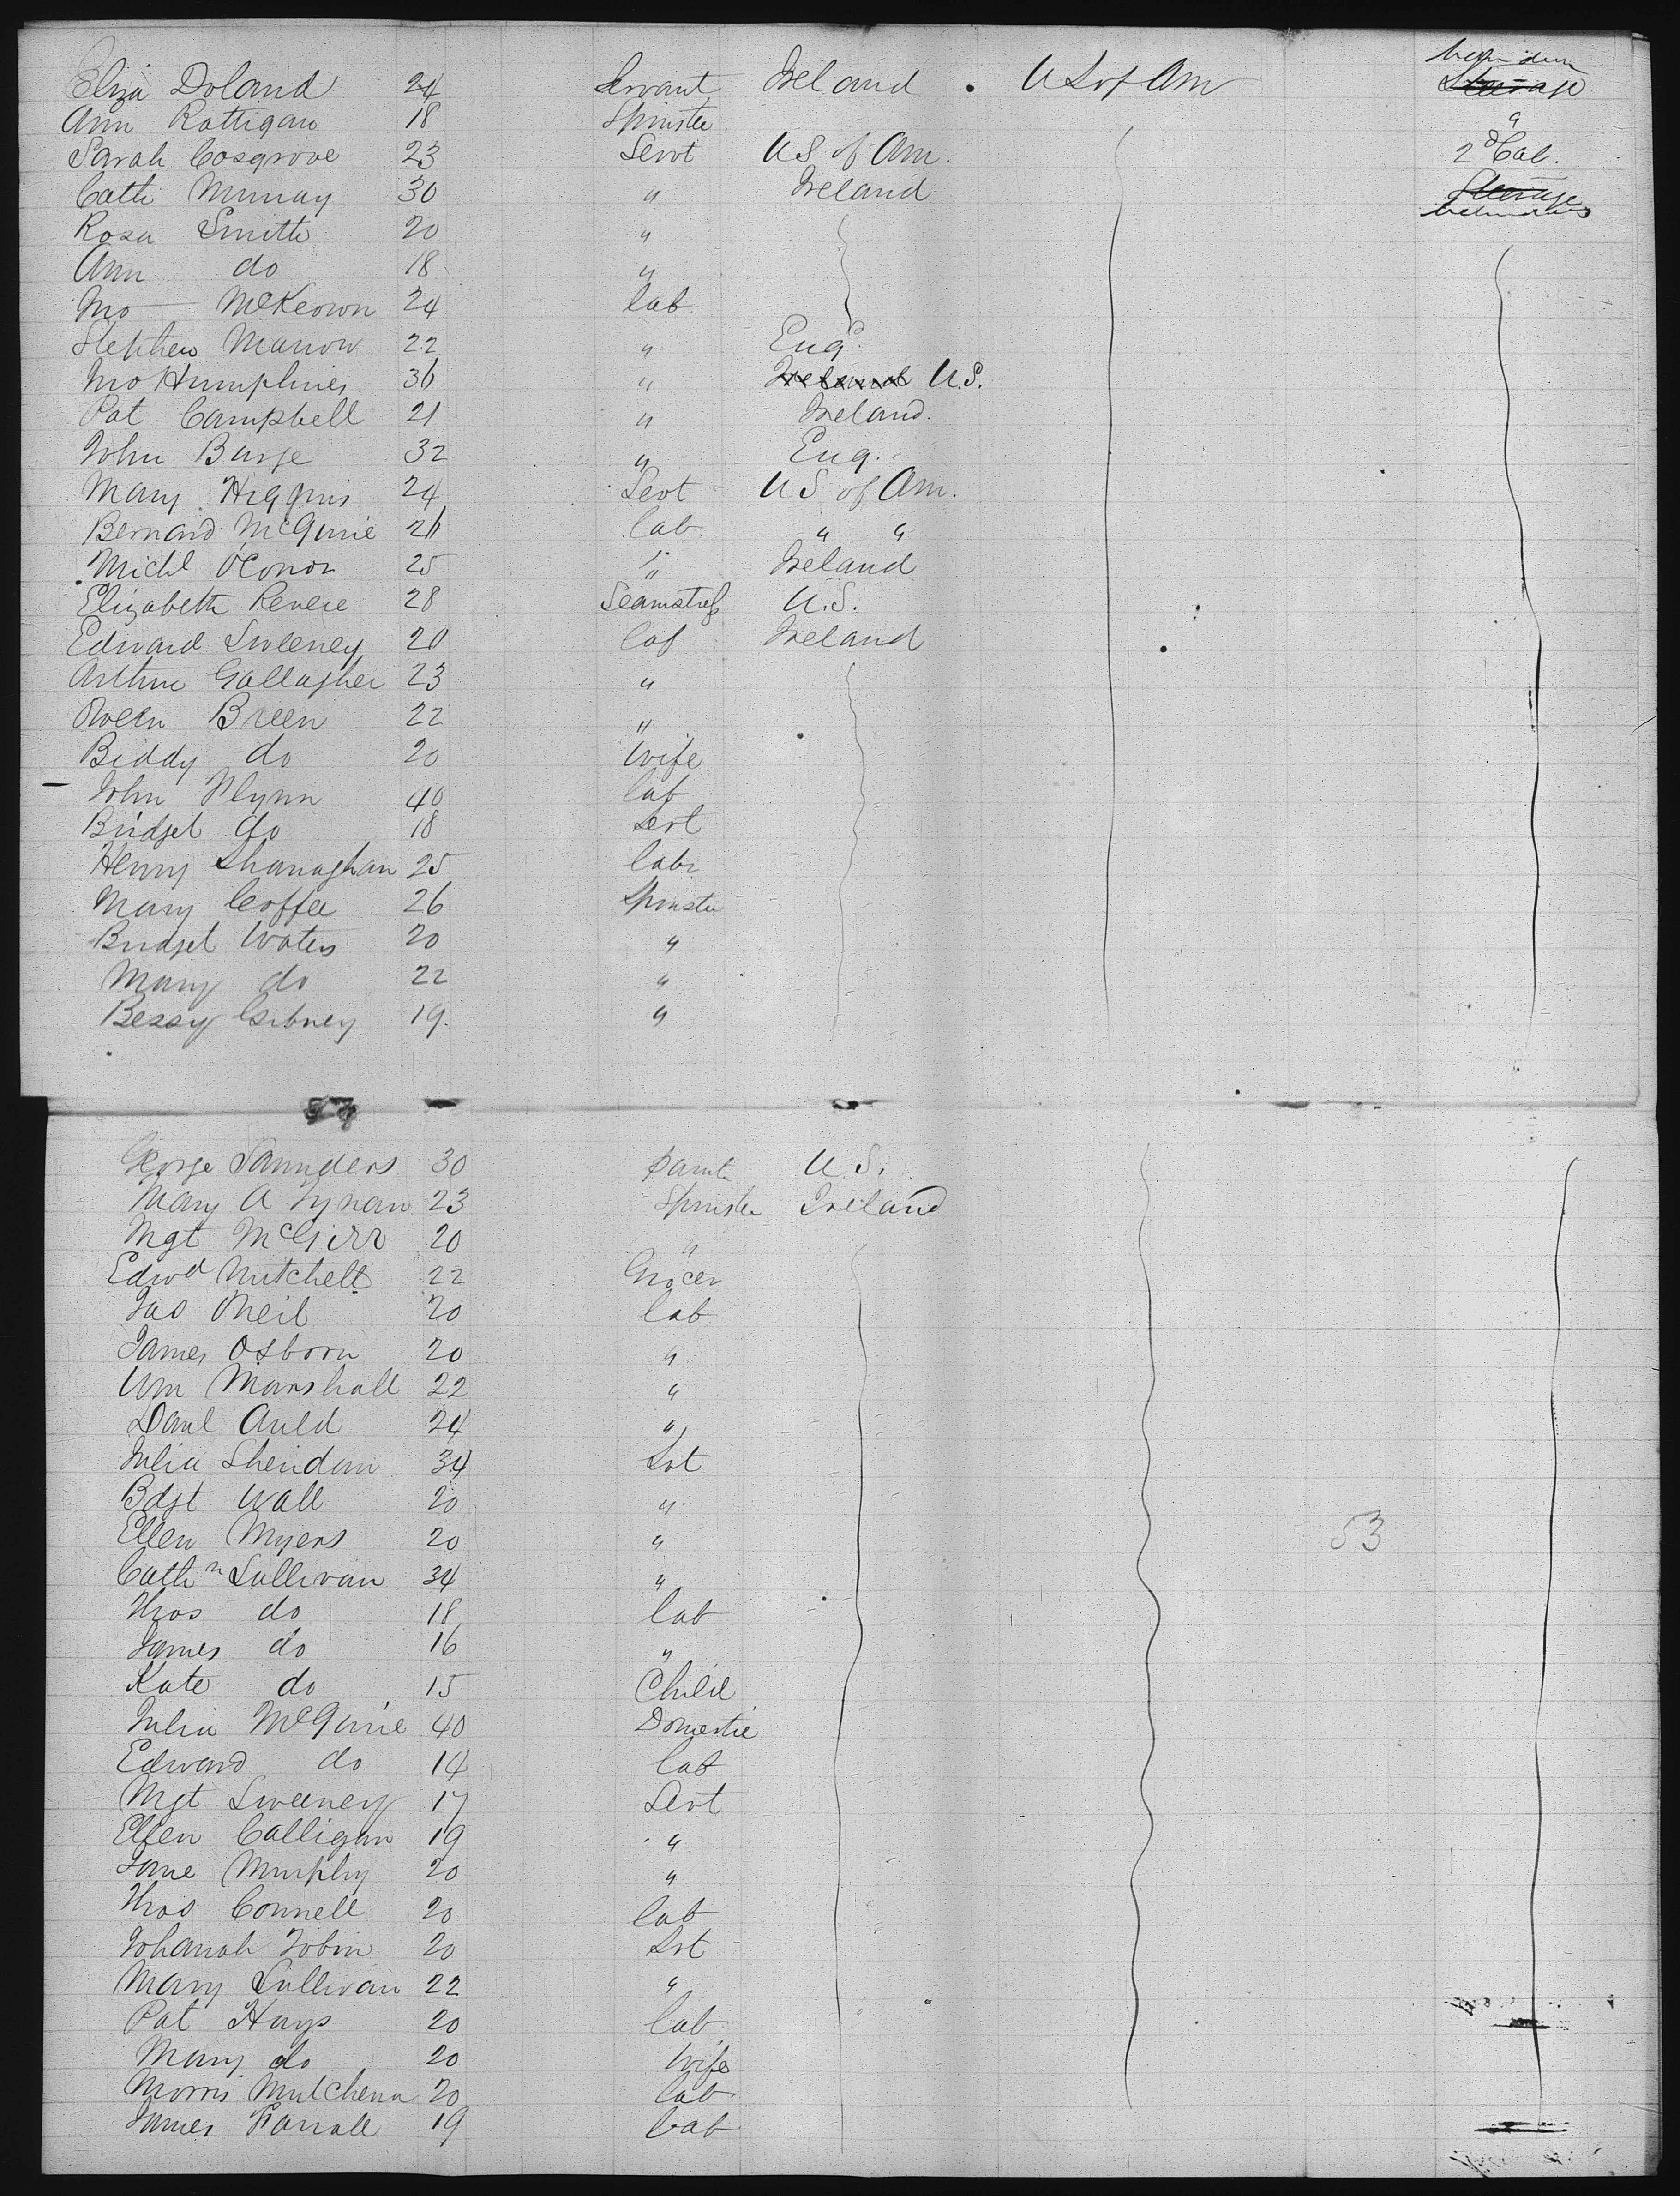 Eliza Doland 24 Servant Ireland . US of Am between decks Steerage
Ann Rattigan 18 Spinster "
Sarah Cosgrove 23 Servt US of Am. 2d Cab.
Cath Murray 30 " Ireland Steerage
Rosa Smith 20 "
Ann do 18 "
Jno McKeown 24 lab
Stephen Marrow 22 " Eng.
Jno Humphries 36 " Ireland U.S.
Pat Campbell 21 " Ireland.
John Barge 32 " Eng.
Mary Higgins 24 Sevt US of Am.
Bernard McGuire 26 lab " "
Michl O'Conor 25 " Ireland
Elizabeth Revere 28 Seamstress U.S.
Edward Sweeney 20 lab Ireland
Arthur Gallagher 23 "
Owen Breen 22 "
Biddy do 20 Wife
John Flynn 40 lab
Bridget do 18 Sevt
Henry Shanaghan 25 labr
Mary Coffee 26 Spinster
Bridget Waters 20 "
Mary do 22 "
Bessy Gibney 19. "
George Saunders 30 Paint U.S.
Mary A Tynan 23 Spinster Ireland
Mgt McGirr 20 "
Edwd Mitchell 22 Grocer
Jas ONeil 20 lab
James Osborn 20 "
Wm Marshall 22 "
Danl Auld 24 "
Julia Sheridan 34 Svt
Bdgt Wall 20 "
Ellen Myers 20 " 53
Cathn Sullivan 34 "
Thos do 18 lab
James do 16 "
Kate do 15 Child
Julia McGuire 40 Domestic
Edward do 14 lab
Mgt Sweeney 17 Sevt
Ellen Calligan 19 "
Jane Murphy 20 "
Thos Connell 20 lab
Johanah Tobin 20 Svt
Mary Sullivan 22 "
Pat Hays 20 lab
Mary do 20 Wife
Morris 20 lab
James Farrall 19 lab